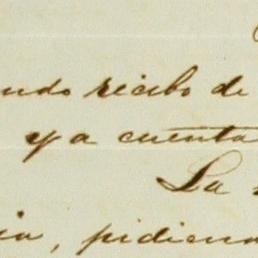 ndo recibo de
y a cuenta
La
ia, pidiend